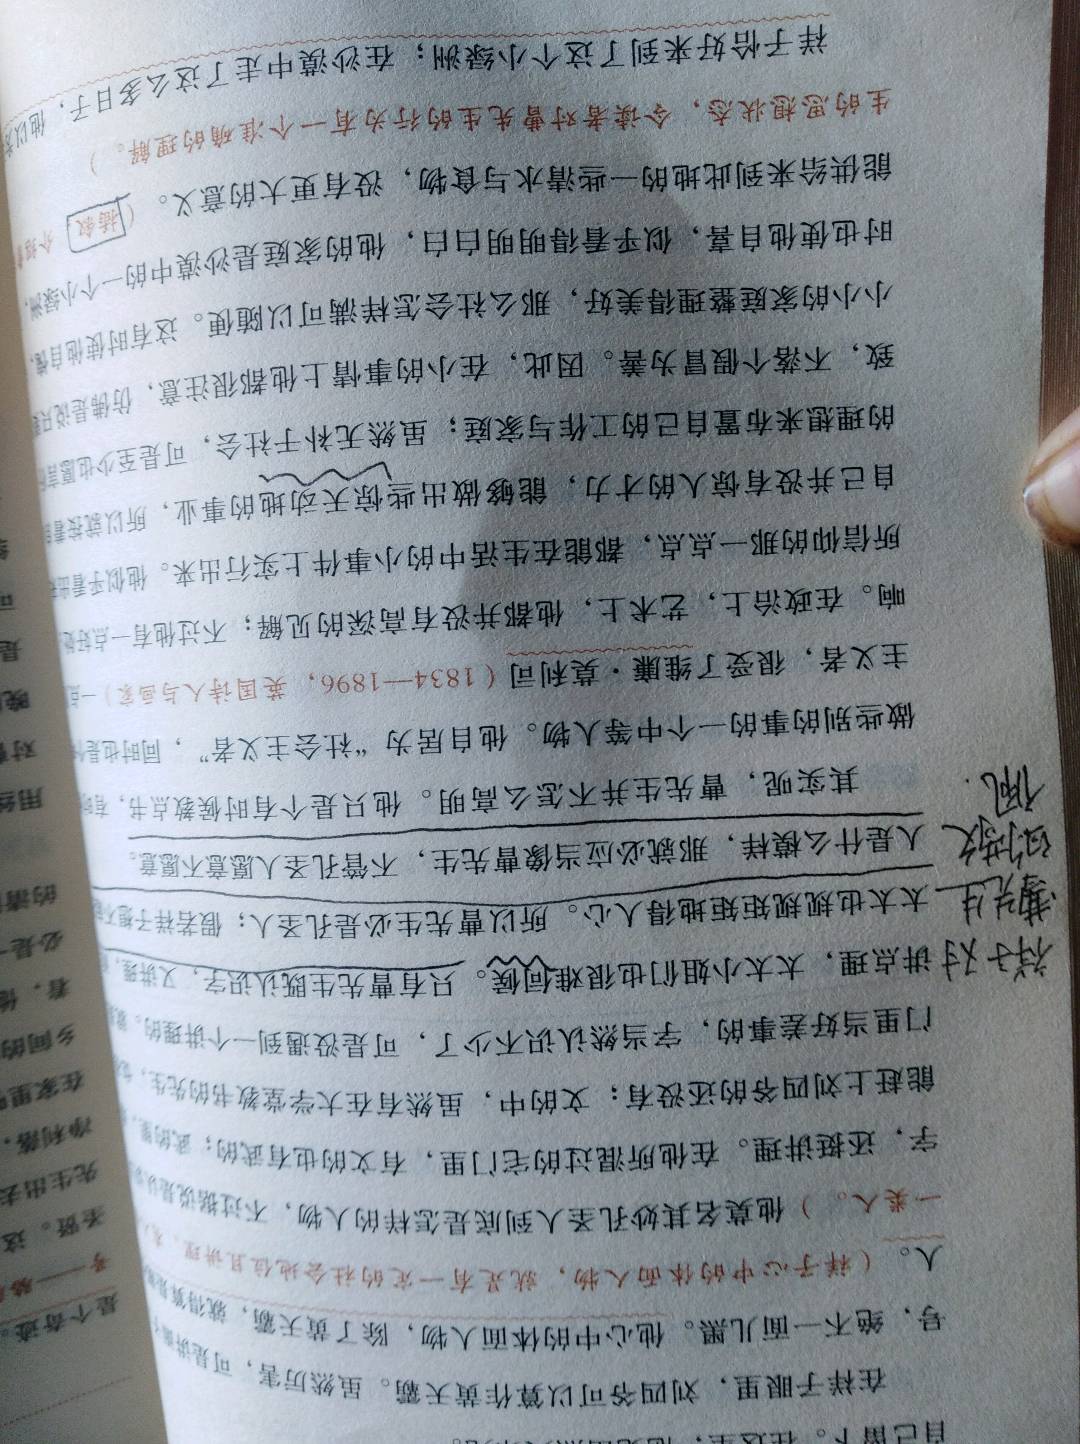 自己留下。在这里，他
在祥子眼里，刘四爷可以算作黄天霸。虽然厉害，可是讲
号，绝不一面儿黑。他心中的体面人物，除了黄天霸，就得算是
人。（祥子心中的体面人物，就是有一定的社会地位且讲理、
一类人。）他莫名其妙孔圣人到底是怎样的人物，不过据说是认
字，还挺讲理。在他所混过的宅门里，有文的也有武的；武的里，
能赶上刘四爷的还没有；文的中，虽然有在大学堂教书的先生，
门里当好差事的，字当然认识不少了，可是没遇到一个讲理的。
讲点理，太太小姐们也很难伺候。只有曹先生既认识字，又讲理，
太太也规规矩矩地得人心。所以曹先生必是孔圣人；假若祥子想不
人是什么模样，那就必应当像曹先生，不管孔圣人愿意不愿意。
其实呢，曹先生并不怎么高明。他只是个有时候教点书，有时
做些别的事的一个中等人物。他自居为“社会主义者”，同时也是
主义者，很受了维廉·莫利司（1834—1896，英国诗人与画家）一点
响。在政治上，艺术上，他都并没有高深的见解；不过他有一点好处
所信仰的那一点点，都能在生活中的小事件上实行出来。他似乎看出
自己并没有惊人的才力，能够做出些惊天动地的事业，所以就按着
的理想来布置自己的工作与家庭；虽然无补于社会，可是至少也愿言
致，不落个假冒为善。因此，在小的事情上他都很注意，仿佛是说只
小小的家庭整理得美好，那么社会怎样满可以随便。这有时使他自愧，
时也使他自喜，似乎看得明明白白，他的家庭是沙漠中的一个小绿洲，
能供给来到此地的一些清水与食物，没有更大的意义。（插叙
生的思想状态，令读者对曹先生的行为有一个准确的理解。）
祥子恰好来到了这个小绿洲；在沙漠中走了这么多日子，他以为
祥子对
曹先生
佩
是个奇迹。
圣贤。这
先生出去
净利落，
在家里
乡间的
着，他
必是一
的清
用
对
晚
是
可